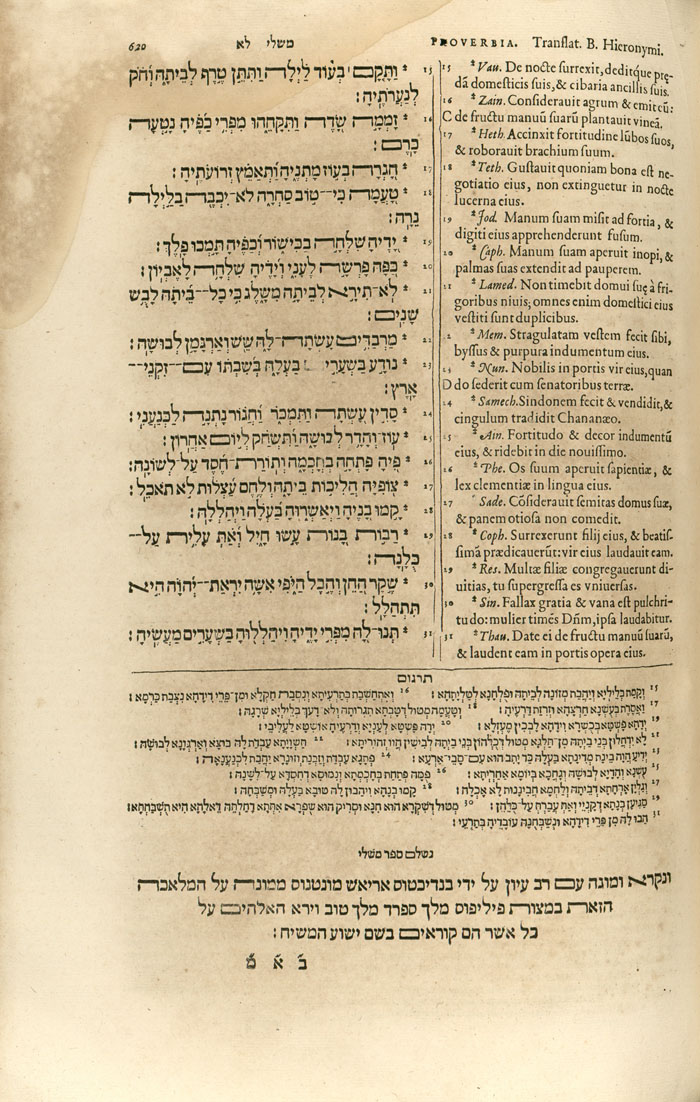 620 משלי לא
PROVERBIA. Translat. B. Hieronymi.
15 ותקם בעוד לילה ותתן טרף לביתה וחק
לנערתיה:
16 זממה שדה ותקחהו מפרי כפיה נטעה
כרם:
17 חגרה בעוז מתניה ותאמץ זרועתיה:
18 טעמה כי טוב סחרה לא יכבה בלילה
נרה:
19 ידיה שלחה בכישור וכפיה תמכו פלך:
20 כפה פרשה לעני וידיה שלחה לאביון:
21 לא תירא לביתה משלג כי כל ביתה לבש
שנים:
22 מרבדים עשתה לה שש וארגמן לבושה:
23 נודע בשערי בעלה בשבתו עם זקני
ארץ:
24 סדין עשתה ותמכר וחגור נתנה לכנעני:
25 עוז והדר לבושה ותשחק ליום אחרון:
26 פיה פתחה בחכמה ותורת חסד על לשונה:
27 צופיה הליכות ביתה ולחם עצלות לא תאכל:
28 קמו בניה ויאשרוה בעלה ויהללה:
29 רבות בנות עשו חיל ואת עלית על
כלנה:
30 שקר החן והבל היפי אשה יראת יהוה היא
תתהלל:
31 תנו לה מפרי ידיה ויהללוה בשערים מעשיה:
15 *Vau. De nocte surrexit, deditq́ue prę-
dā domesticis suis, & cibaria ancillis suis.
16 *Zain. Considerauit agrum & emit eū:
C de fructu manuū suarū plantauit vineā.
17 *Heth. Accinxit fortitudine lūbos suos,
& roborauit brachium suum.
18 *Teth. Gustauit quoniam bona est ne-
gotiatio eius, non extinguetur in nocte
lucerna eius.
19 *Jod. Manum suam misit ad fortia, &
digiti eius apprehenderunt fusum.
20 *Caph. Manum suam aperuit inopi, &
palmas suas extendit ad pauperem.
21 *Lamed. Non timebit domui suę à fri-
goribus niuis; omnes enim domestici eius
vestiti sunt duplicibus.
22 *Mem. Stragulatam vestem fecit sibi,
byssus & purpura indumentum eius.
23 *Nun. Nobilis in portis vir eius, quan
D do sederit cum senatoribus terræ.
24 *Samech. Sindonem fecit & vendidit, &
cingulum tradidit Chananæo.
25 *Ain. Fortitudo & decor indumentū
eius, & ridebit in die nouissimo.
26 *Phe. Os suum aperuit sapientiæ, &
lex clementiæ in lingua eius.
27 *Sade. Cōsiderauit semitas domus suæ,
& panem otiosa non comedit.
28 *Coph. Surrexerunt filij eius, & beatis-
simā prædicauerūt: vir eius laudauit eam.
29 *Res. Multæ filiæ congregauerunt di-
uitias, tu supergressa es vniuersas.
30 *Sin. Fallax gratia & vana est pulchri-
tudo: mulier timēs Dñm, ipsa laudabitur.
31 *Thau. Date ei de fructu manuū suarū,
& laudent eam in portis opera eius.
תרגום
נשלם ספר משלי
ונקרא ומוגה עם רב עיון על ידי בנדיכטוס אריאש מונטנוס ממונה על המלאכה
הזאת במצות פיליפוס מלך ספרד מלך טוב וירא האלהים על
כל אשר הם קוראים בשם ישוע המשיח:
ב א מ